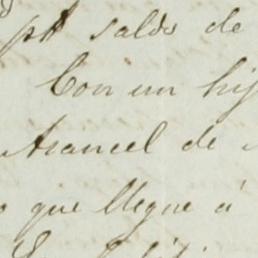 saldo de
Con un hij
Arancel de
que llegue á